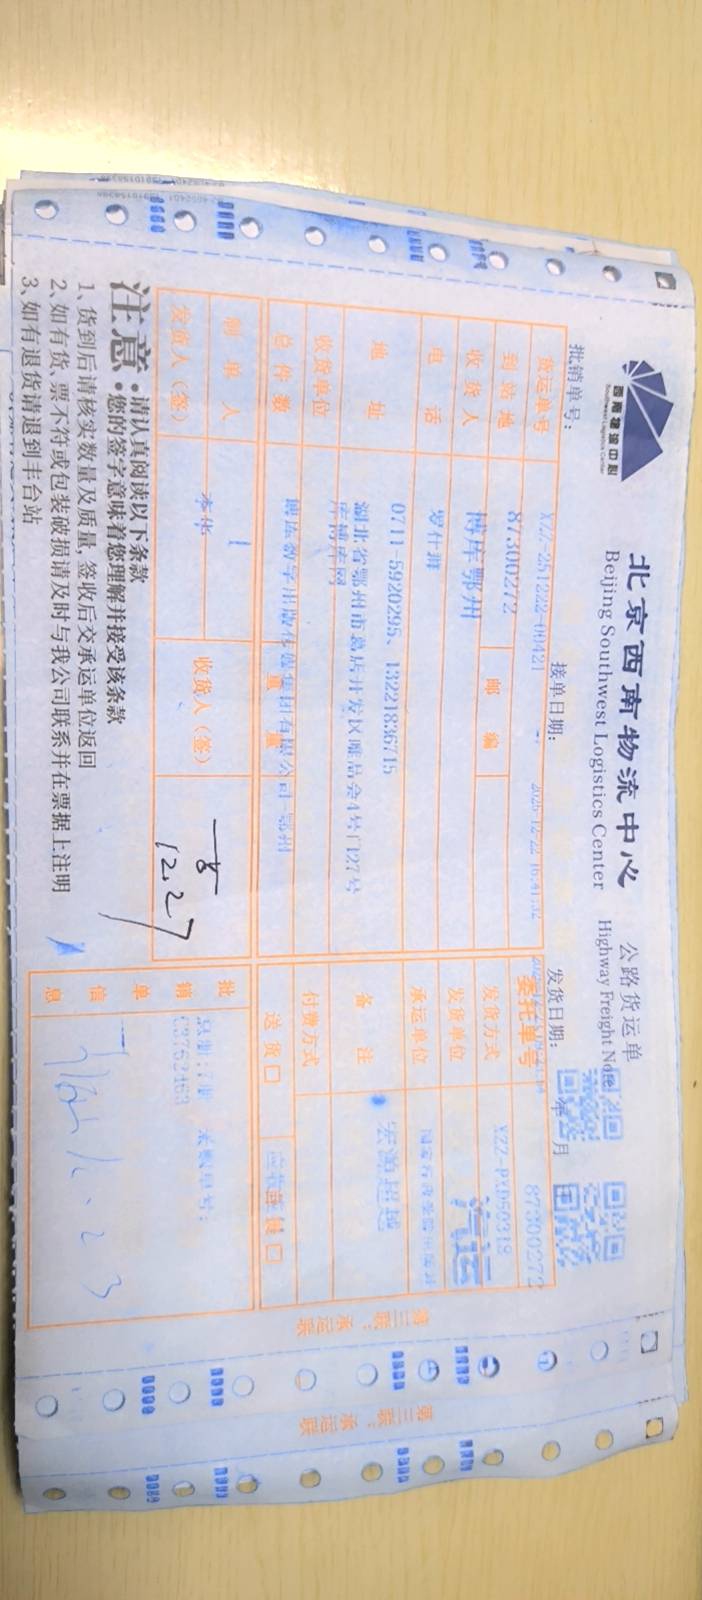 西南物流中心
Southwest Logistics Center
北京西南物流中心 公路货运单
Beijing Southwest Logistics Center Highway Freight Note
批销单号: 接单日期: 2025-12-22 16:41:32 发货日期: 年 月 日
货运单号 XZZ-251222-00421 委托单号 87300272
到站地 87300272 邮编 发货方式 YZZ-PXD50318
收货人 博库鄂州 发货单位 汽运
电话 罗仕辉 承运单位
地址 0711-5920295、13221836715 备注 宏瀚超越
湖北省鄂州市葛店开发区唯品会4号门27号
库博库网
收货单位 付费方式
总件数 博库数字出版传媒集团有限公司-鄂州 重量 送货□ 应收重货□
制单人 1
发货人(签) 李华 收货人(签)
12.27
批销单信息 总册:7册 采购单号:
C3762463
注意:请认真阅读以下条款
您的签字意味着您理解并接受该条款
1、货到后请核实数量及质量,签收后交承运单位返回
2、如有货、票不符或包装破损请及时与我公司联系并在票据上注明
3、如有退货请退到丰台站
第三联:承运联
第三联:承运联